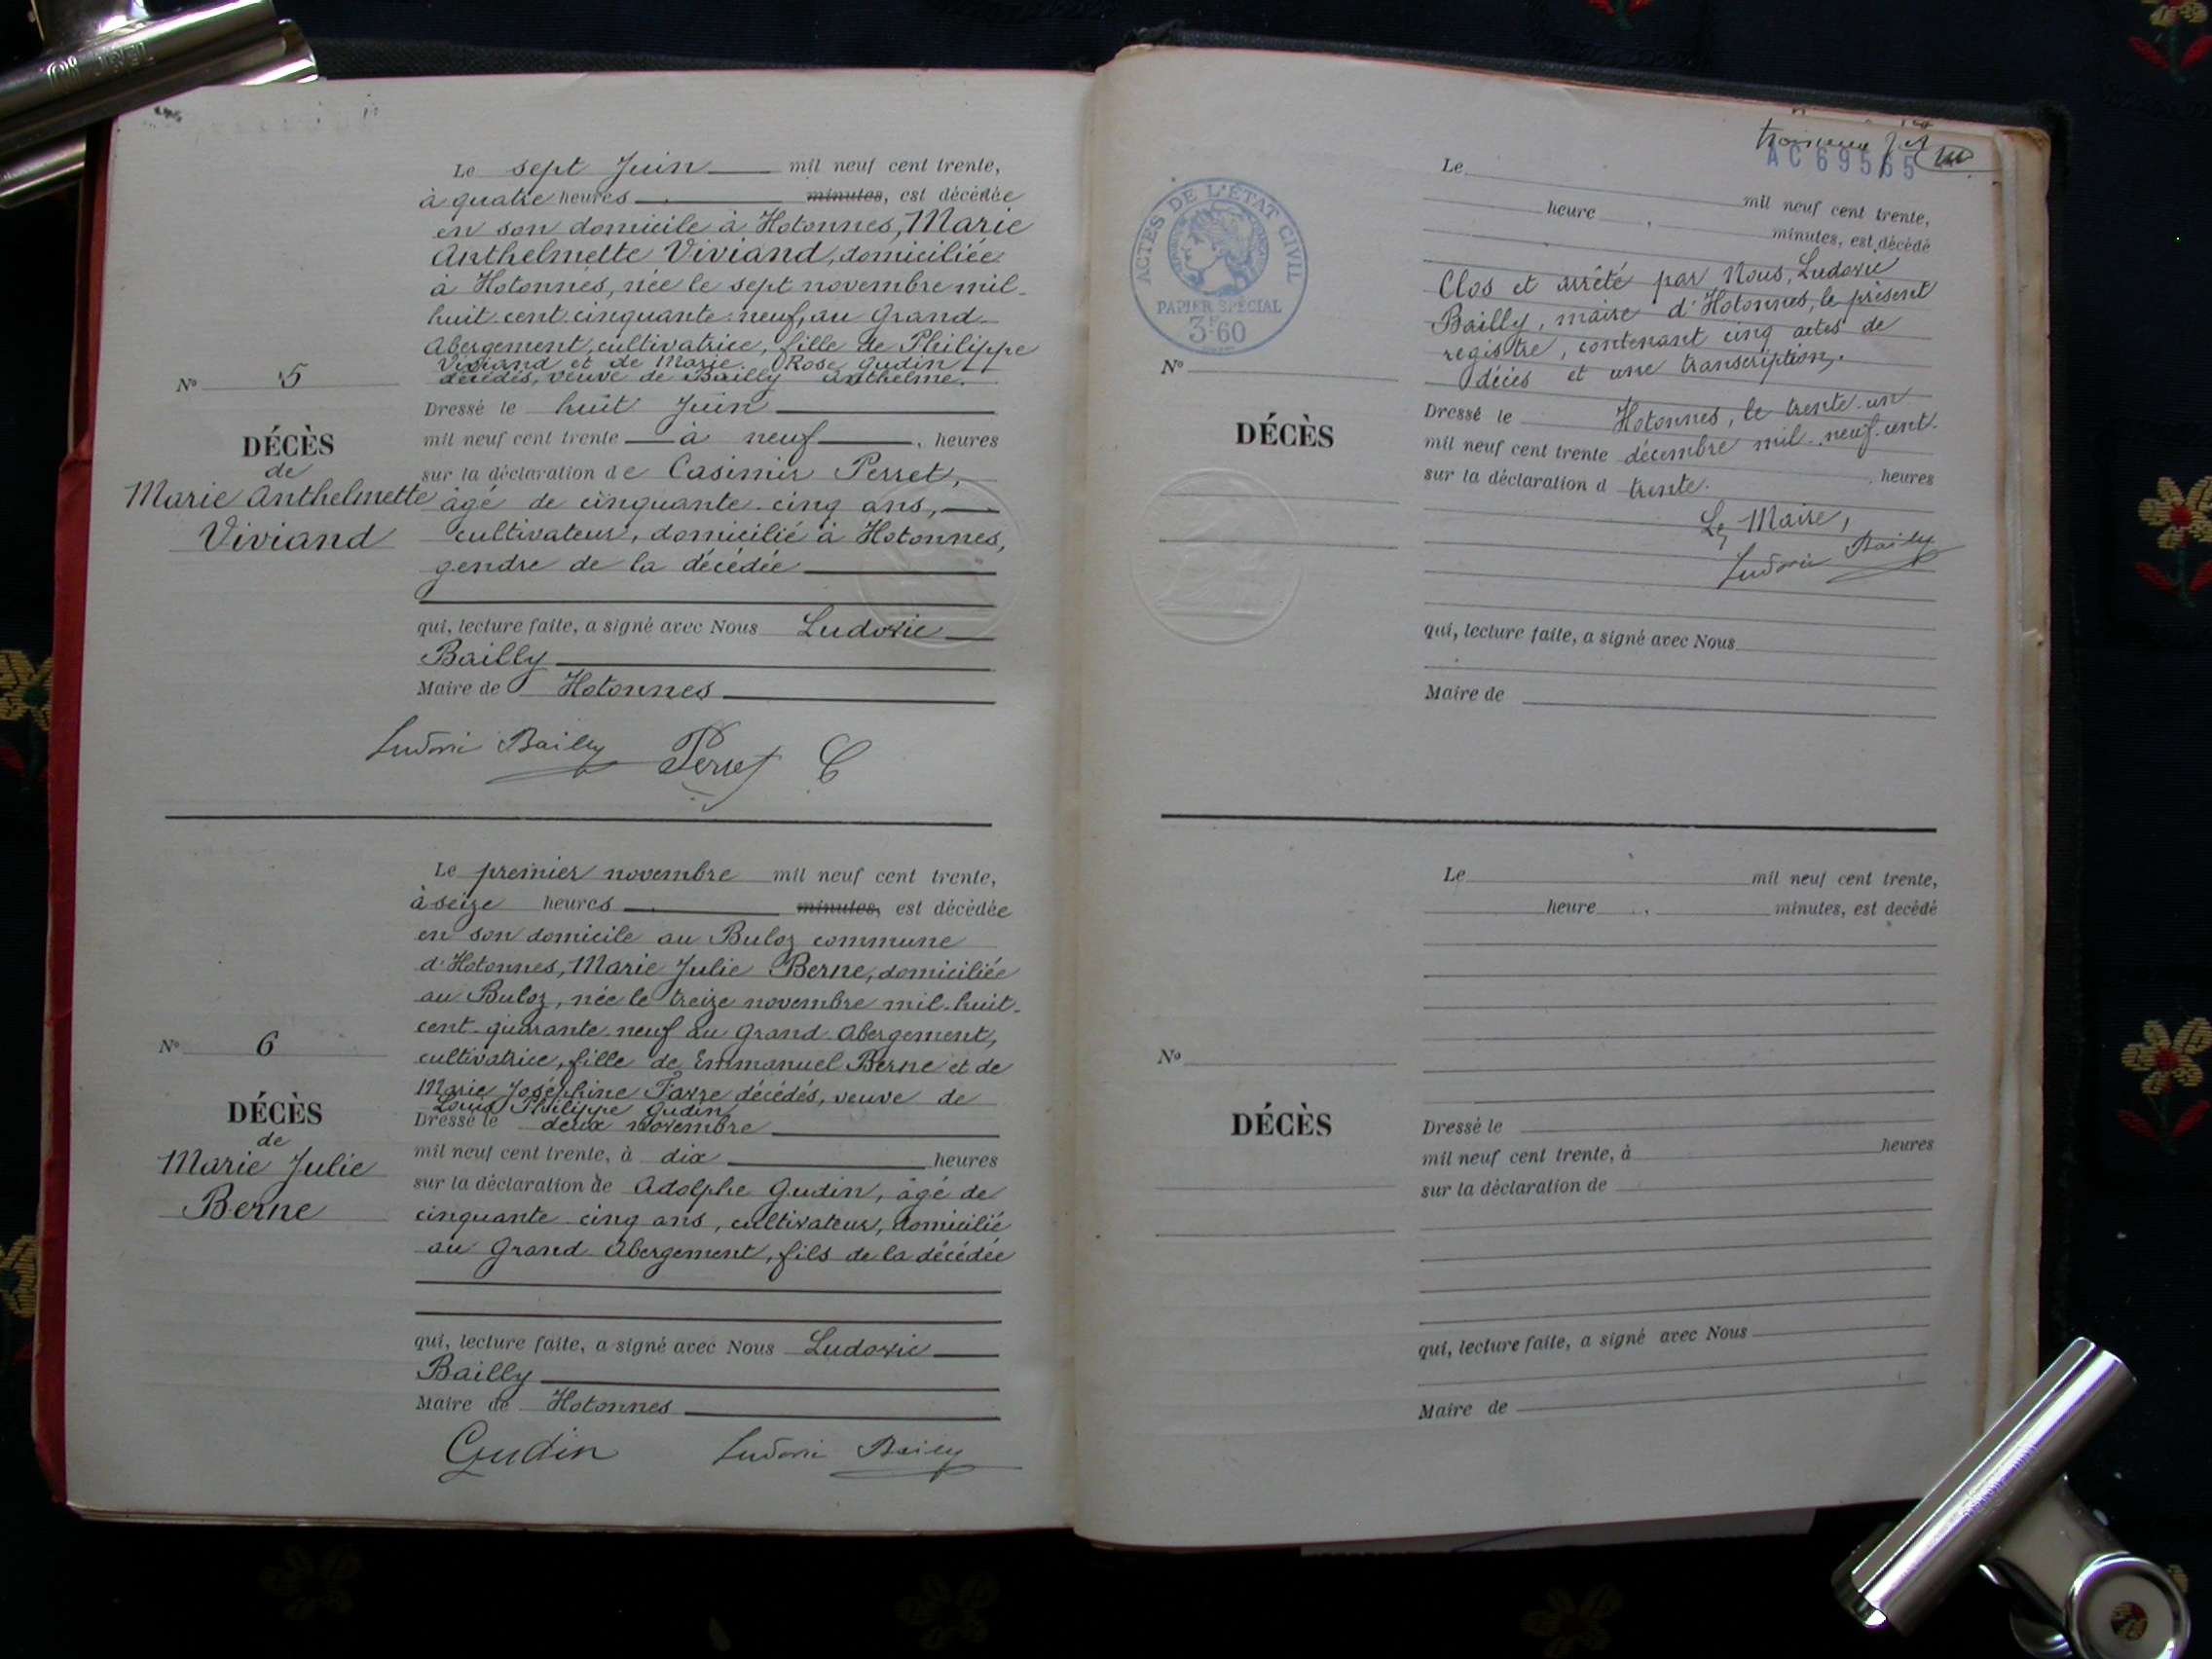 Le sept Juin mil neuf cent trente,
à quatre heures minutes, est décédée
en son domicile à Hotonnes, Marie
Anthelmette Viviand, domiciliée
à Hotonnes, née le sept novembre mil-
huit-cent-cinquante-neuf, au Grand-
Abergement, cultivatrice, fille de Philippe
Viviand et de Marie Rose Gudin
décédés, veuve de Bailly Anthelme.
N° 5
DÉCÈS
de
Marie Anthelmette
Viviand
Dressé le huit Juin
mil neuf cent trente à neuf, heures
sur la déclaration de Casimir Perret,
âgé de cinquante-cinq ans,
cultivateur, domicilié à Hotonnes,
gendre de la décédée
qui, lecture faite, a signé avec Nous Ludovic
Bailly
Maire de Hotonnes
Ludovic Bailly Perret C
Le premier novembre mil neuf cent trente,
à seize heures minutes, est décédée
en son domicile au Buloz commune
d'Hotonnes, Marie Julie Berne, domiciliée
au Buloz, née le treize novembre mil-huit-
cent-quarante-neuf au Grand-Abergement,
cultivatrice, fille de Emmanuel Berne et de
Marie Joséphine Favre décédés, veuve de
Louis Philippe Gudin
N° 6
DÉCÈS
de
Marie Julie
Berne
Dressé le deux novembre
mil neuf cent trente, à dix heures
sur la déclaration de Adolphe Gudin, âgé de
cinquante-cinq ans, cultivateur, domicilié
au Grand-Abergement, fils de la décédée
qui, lecture faite, a signé avec Nous Ludovic
Bailly
Maire de Hotonnes
Gudin Ludovic Bailly
AC 69565
ACTES DE L'ÉTAT CIVIL
PAPIER SPÉCIAL
3F60
Le
mil neuf cent trente,
heure , minutes, est décédé
Clos et arrêté par Nous, Ludovic
Bailly, maire d'Hotonnes, le présent
registre, contenant cinq actes de
décès et une transcription.
N°
DÉCÈS
Dressé le Hotonnes, le trente-un
mil neuf cent trente décembre mil-neuf-cent-
sur la déclaration d trente. , heures
Le Maire,
Ludovic Bailly
qui, lecture faite, a signé avec Nous
Maire de
Le mil neuf cent trente,
heure , minutes, est decédé
N°
DÉCÈS
Dressé le
mil neuf cent trente, à heures
sur la déclaration de
qui, lecture faite, a signé avec Nous
Maire de